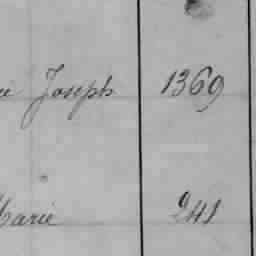 Joseph 1369
Marie 241